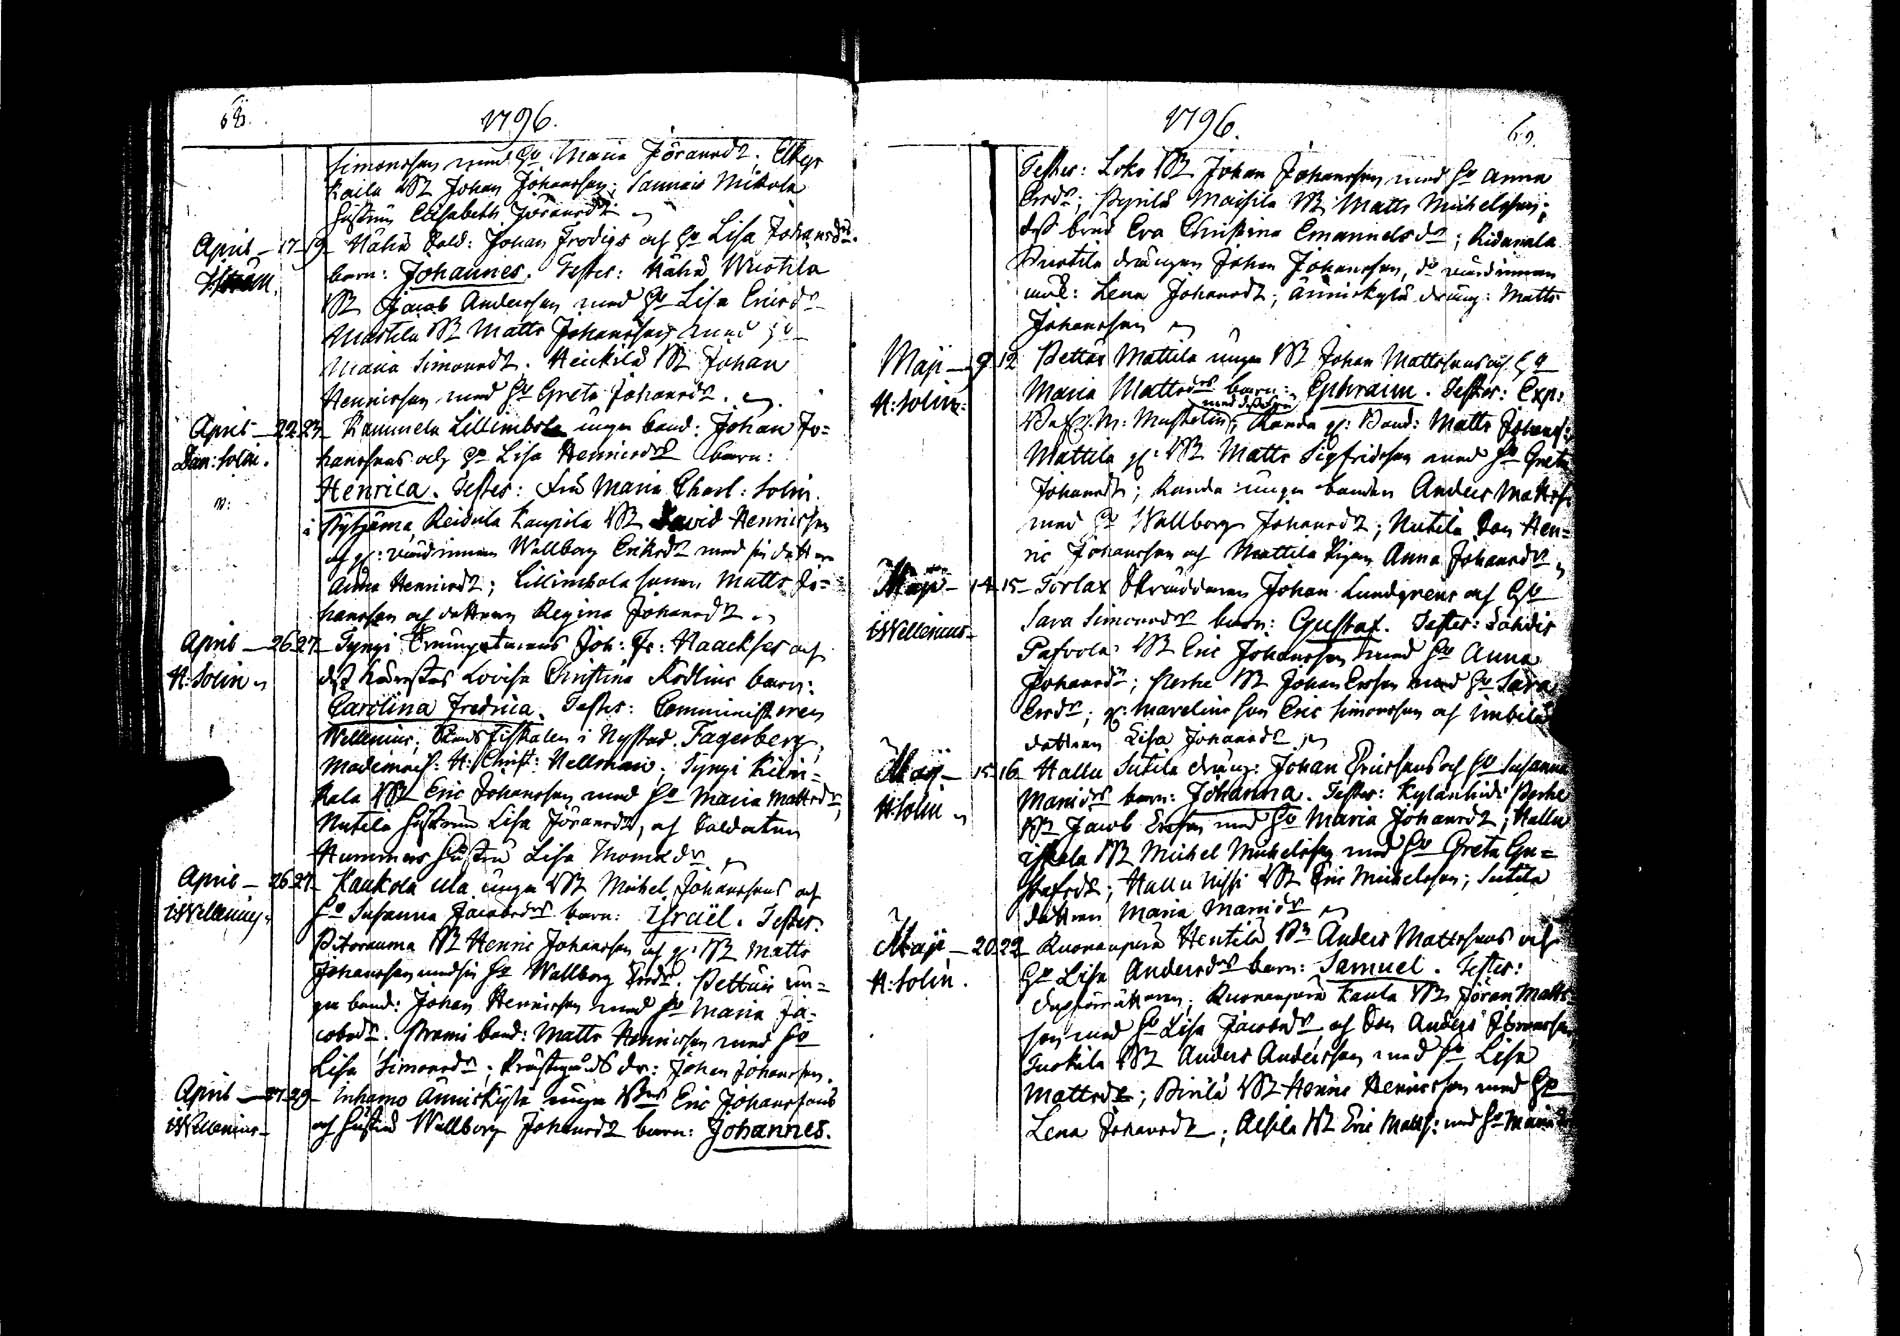 68.
1796.
Simonsson med Ho Maria Jöransdr; Elkys
Kaila Bd Johan Johansson; Sannais Mikola
hustrun Elisabeth Jöransdr
April 17 19 Hähn Sold: Johan Frodigs och Ho Lisa Johansdrs
barn: Johannes. Testes: Hähn Wuotila
Bd Jacob Andersson med Ho Lisa Ericsdr
Mattila Bd Matts Johansson med Ho
Maria Simonsdr; Heickilä Bd Johan
Henricsson med Ho Greta Johansdr.
April 22 23 Kammela Lillimbola unga bond: Johan Jo=
Dan: Solin. hanssons och Ho Lisa Henricsdrs barn:
Henrica. Testes: Fru Maria Charl: Solin
i Pyhjäma, Reidula Kaupila Bd David Henricsson
och gl: värdinnan Wallborg Eriksdr med sin dotter
Anna Henricsdr; Lillimbola sonen Matts Jo=
hansson och dottren Regina Johansdr
April 26 27 Tyngi Joh: Fr: Haackses och
H: Solin dess Lovisa Christina Ködlins barn:
Carolina Fredrica. Testes: Comministeren
Wellenius, Stadsfiskalen i Nystad Fagerberg,
Mademois: H: Christ: Hellman; Tyngi
kala Bd Eric Johansson med Ho Maria Mattsdr,
Nutela hustrun Lisa Jöransdr, och Soldaten
Hummers hustru Lisa Thomædr
April 26 27 Kaukola Ula unga Bd Michel Johanssons och
Wellenius Ho Susanna Jacobsdrs barn: Israël. Testes:
Pitorauma Bd Henric Johansson och gl: Bd Matts
Johansson med sin Ho Wallborg Ersdr. Pettäis un=
ga bond: Johan Henricsson med Ho Maria Ja=
cobsdr. Prami bond: Matts Henricsson med Ho
Lisa Simonsdr; Prästgårds dr: Johan Johansson.
April 27 29 Inhamo Änniskylä unga Bds Eric Johanssons
Wellenius och hustrus Wallborg Johansdr barn: Johannes.
1796.
69.
Testes: Loko Bd Johan Johansson med Ho Anna
Ersdr; Pyrilä Maisila Bd Matts Michelsson;
dess brud Eva Christina Emanuelsdr; Ridamala
Puotila drängen Johan Johansson, do värdinnan
Lena Johansdr; Änniskylä dräng: Matts
Johansson
Maji 9 12 Pettäs Mattila unga Bd Johan Mattssons och Ho
H: Solin Maria Mattsdrs barn: Ephraim. Testes: Exp:
med dottren
M: Muskelin; Randa gl: Bond: Matts Johans:
Mattila gl: Bd Matts Sigfridsson med Ho Greta
Johansdr; Randa unga bonden Anders Mattss:
med Ho Wallborg Johansdr; Nutila Son Hen=
ric Johansson och Mattila Pigan Anna Johansdr
Maji 14 15 Torlax Skräddaren Johan Lundgrens och Ho
Wellenius Sara Simonsdrs barn: Gustaf. Testes: Sahdis
Pafvola Bd Eric Johansson med Ho Anna
Johansdr; Perhe Bd Johan Ersson med Ho Sara
Ersdr; gl: son Eric Simonsson och Imbilä
dottren Lisa Johansdr
Maji 15 16 Hallu Sutila dräng: Johan Ericssons och Ho Susanna
H: Solin barn: Johanna. Testes: Kylänhidi Perhe
Bd Jacob Ersson med Ho Maria Johansdr; Hallu
Iskala Bd Michel Michelsson med Ho Greta Gu=
stafsdr; Hallu Nissi Bd Eric Michelsson; Sutila
dottren Maria
Maji 20 22 Ruonanperä Hentilä Bd Anders Mattssons och
H: Solin. Ho Lisa Andersdrs barn: Samuel. Testes:
Ruonanperä Kaula Bd Jöran Matts=
son med Ho Lisa Jacobsdr och Son Anders Jöransson
Tuokila Bd Anders Andersson med Ho Lisa
Mattsdr; Pirilä Bd Henric Henricsson med Ho
Lena Johansdr; Alsila Bd Eric Matts: med Ho Maria